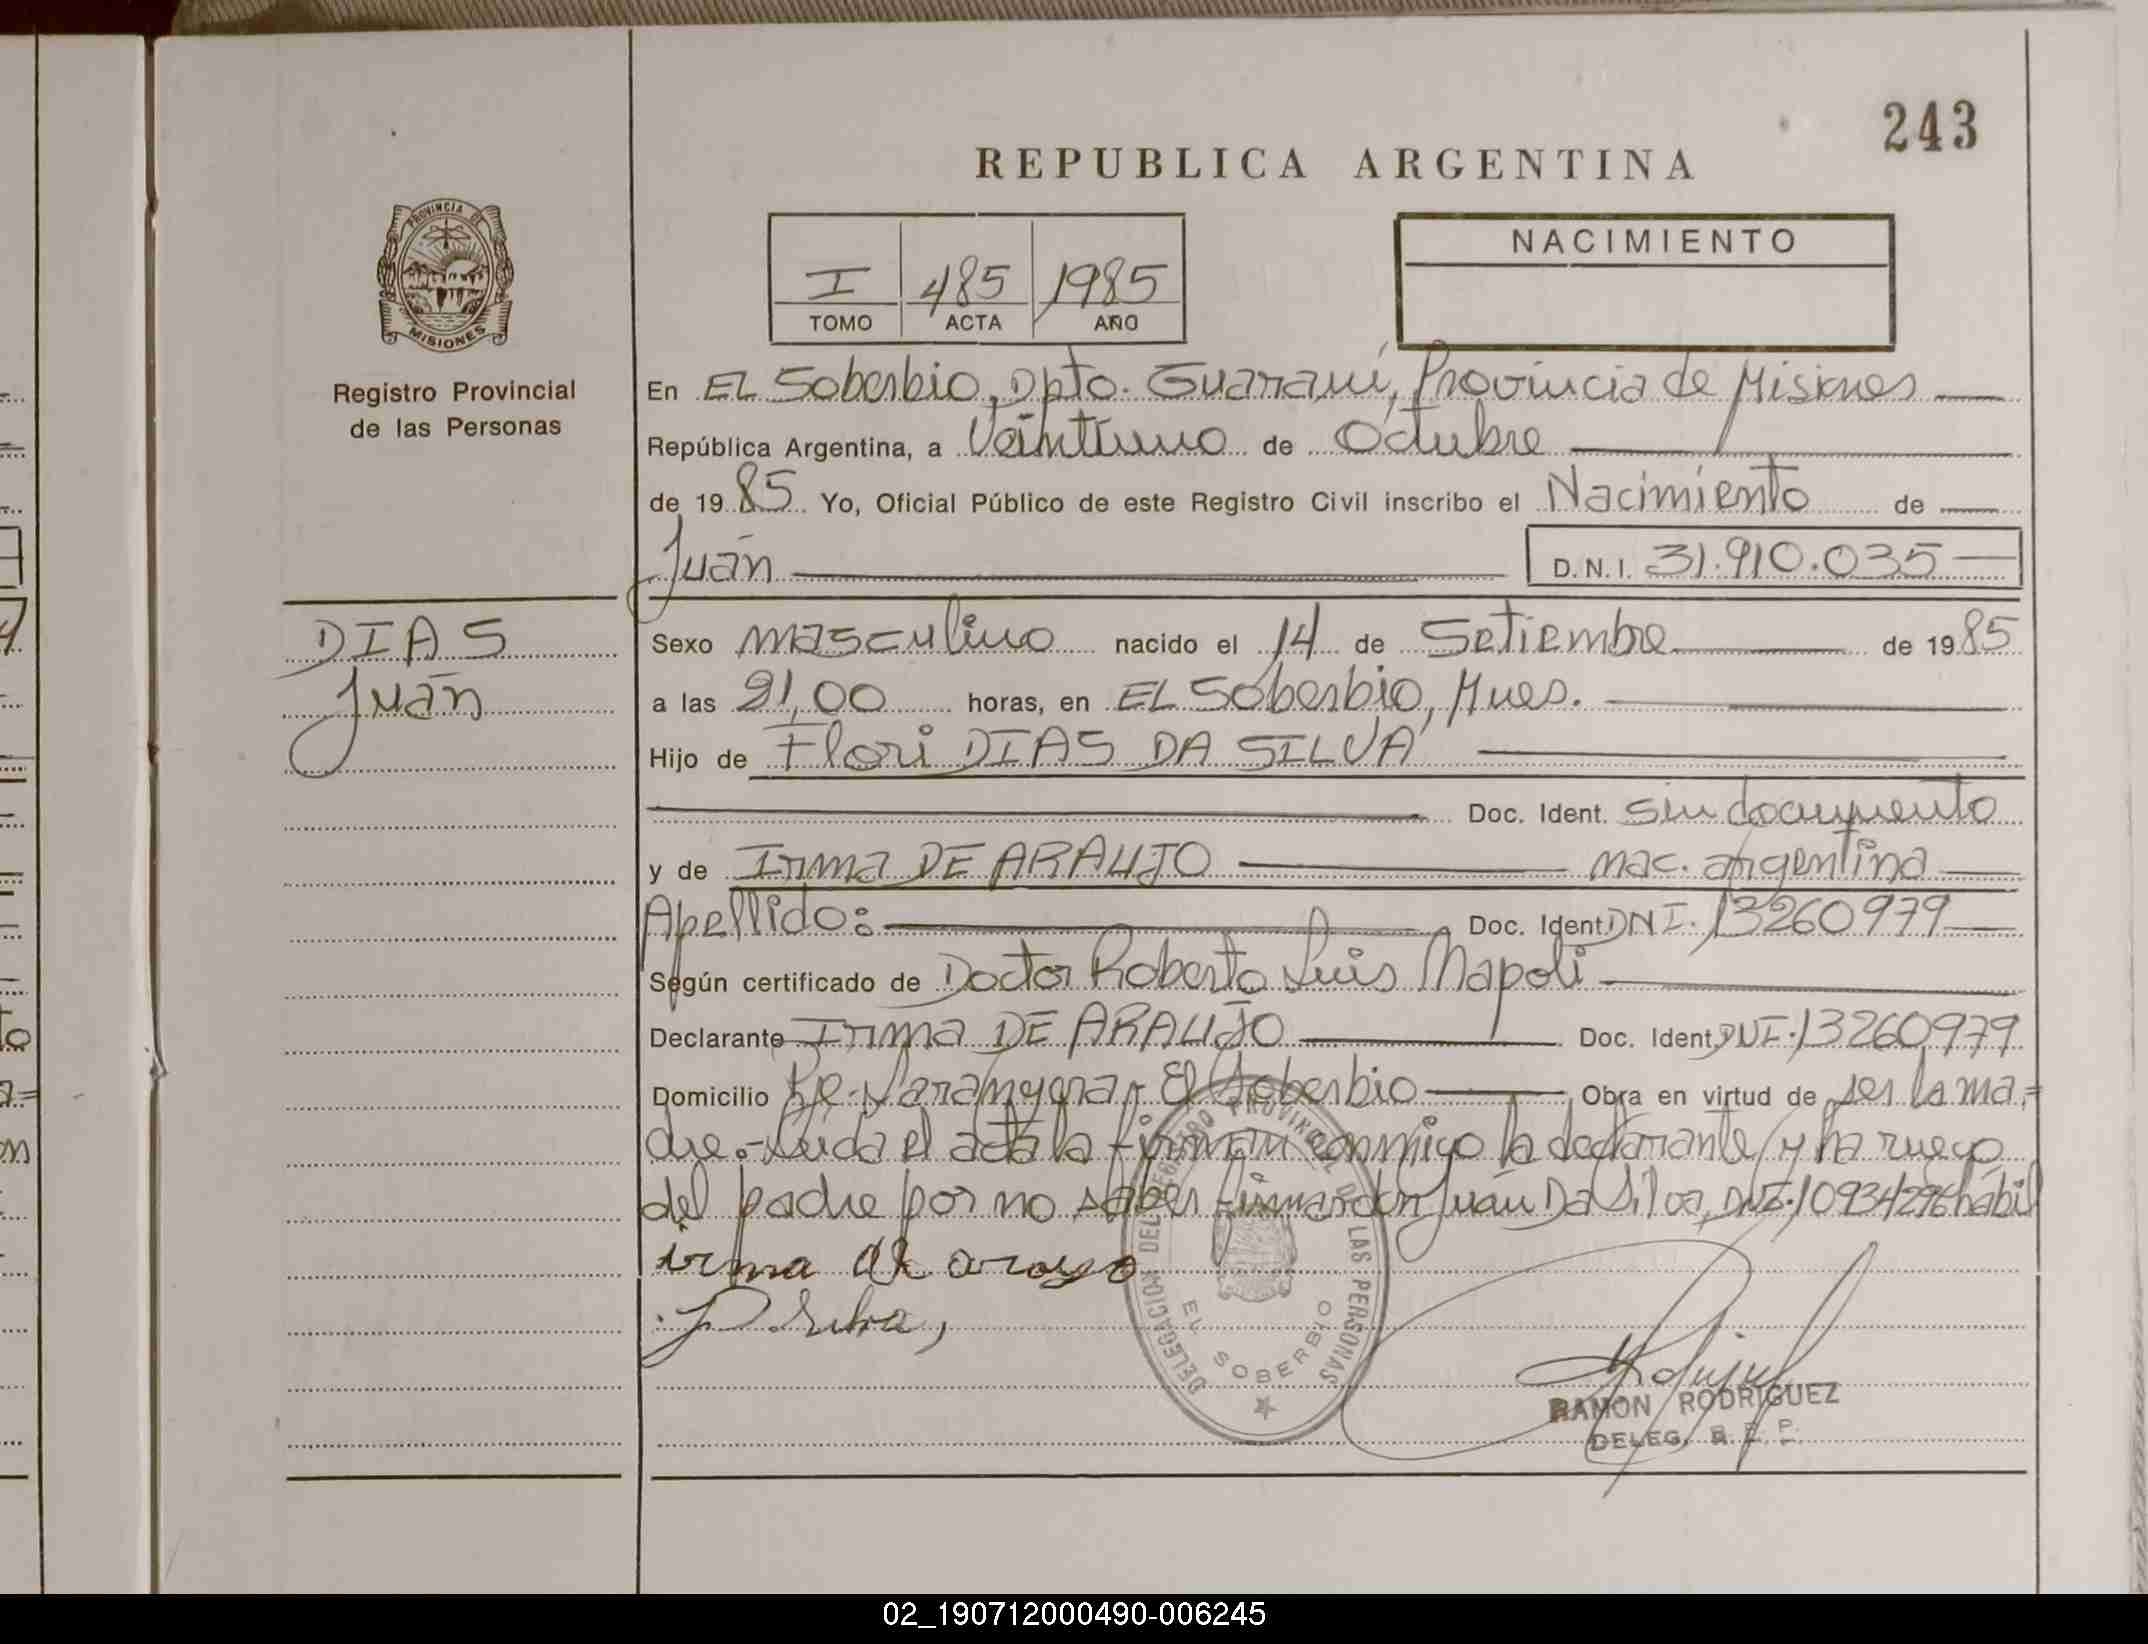 243
REPUBLICA ARGENTINA
PROVINCIA DE
MISIONES
Registro Provincial
de las Personas
I 485 1985
TOMO ACTA AÑO
NACIMIENTO
En EL Soberbio, Dpto. Guaraní, Provincia de Misiones
República Argentina, a Veintiuno de Octubre
de 1985 Yo, Oficial Público de este Registro Civil inscribo el Nacimiento de
Juan D.N.I. 31.910.035
DIAS
Juan
Sexo masculino nacido el 14 de Setiembre de 1985
a las 21,00 horas, en EL Soberbio, Mnes.
Hijo de Flori DIAS DA SILVA
Doc. Ident. sin documento
y de Irma DE ARAUJO nac. argentina
Apellido: Doc. Ident DNI. 13260979
Según certificado de Doctor Roberto Luis Napoli
Declarante Irma DE ARAUJO Doc. Ident DNI. 13260979
Domicilio Pje. El Soberbio Obra en virtud de ser la ma=
dre.- Leida el acta la firman conmigo la declarante y ha ruego
del padre por no saber firmar don Juan Da Silva, DNI. 10934296 habil
irma de aroyo
J D. Silva,
DELEGACION DEL REGISTRO PROVINCIAL DE LAS PERSONAS
EL SOBERBIO
RAMON RODRIGUEZ
DELEG. R. P. P.
02_190712000490-006245